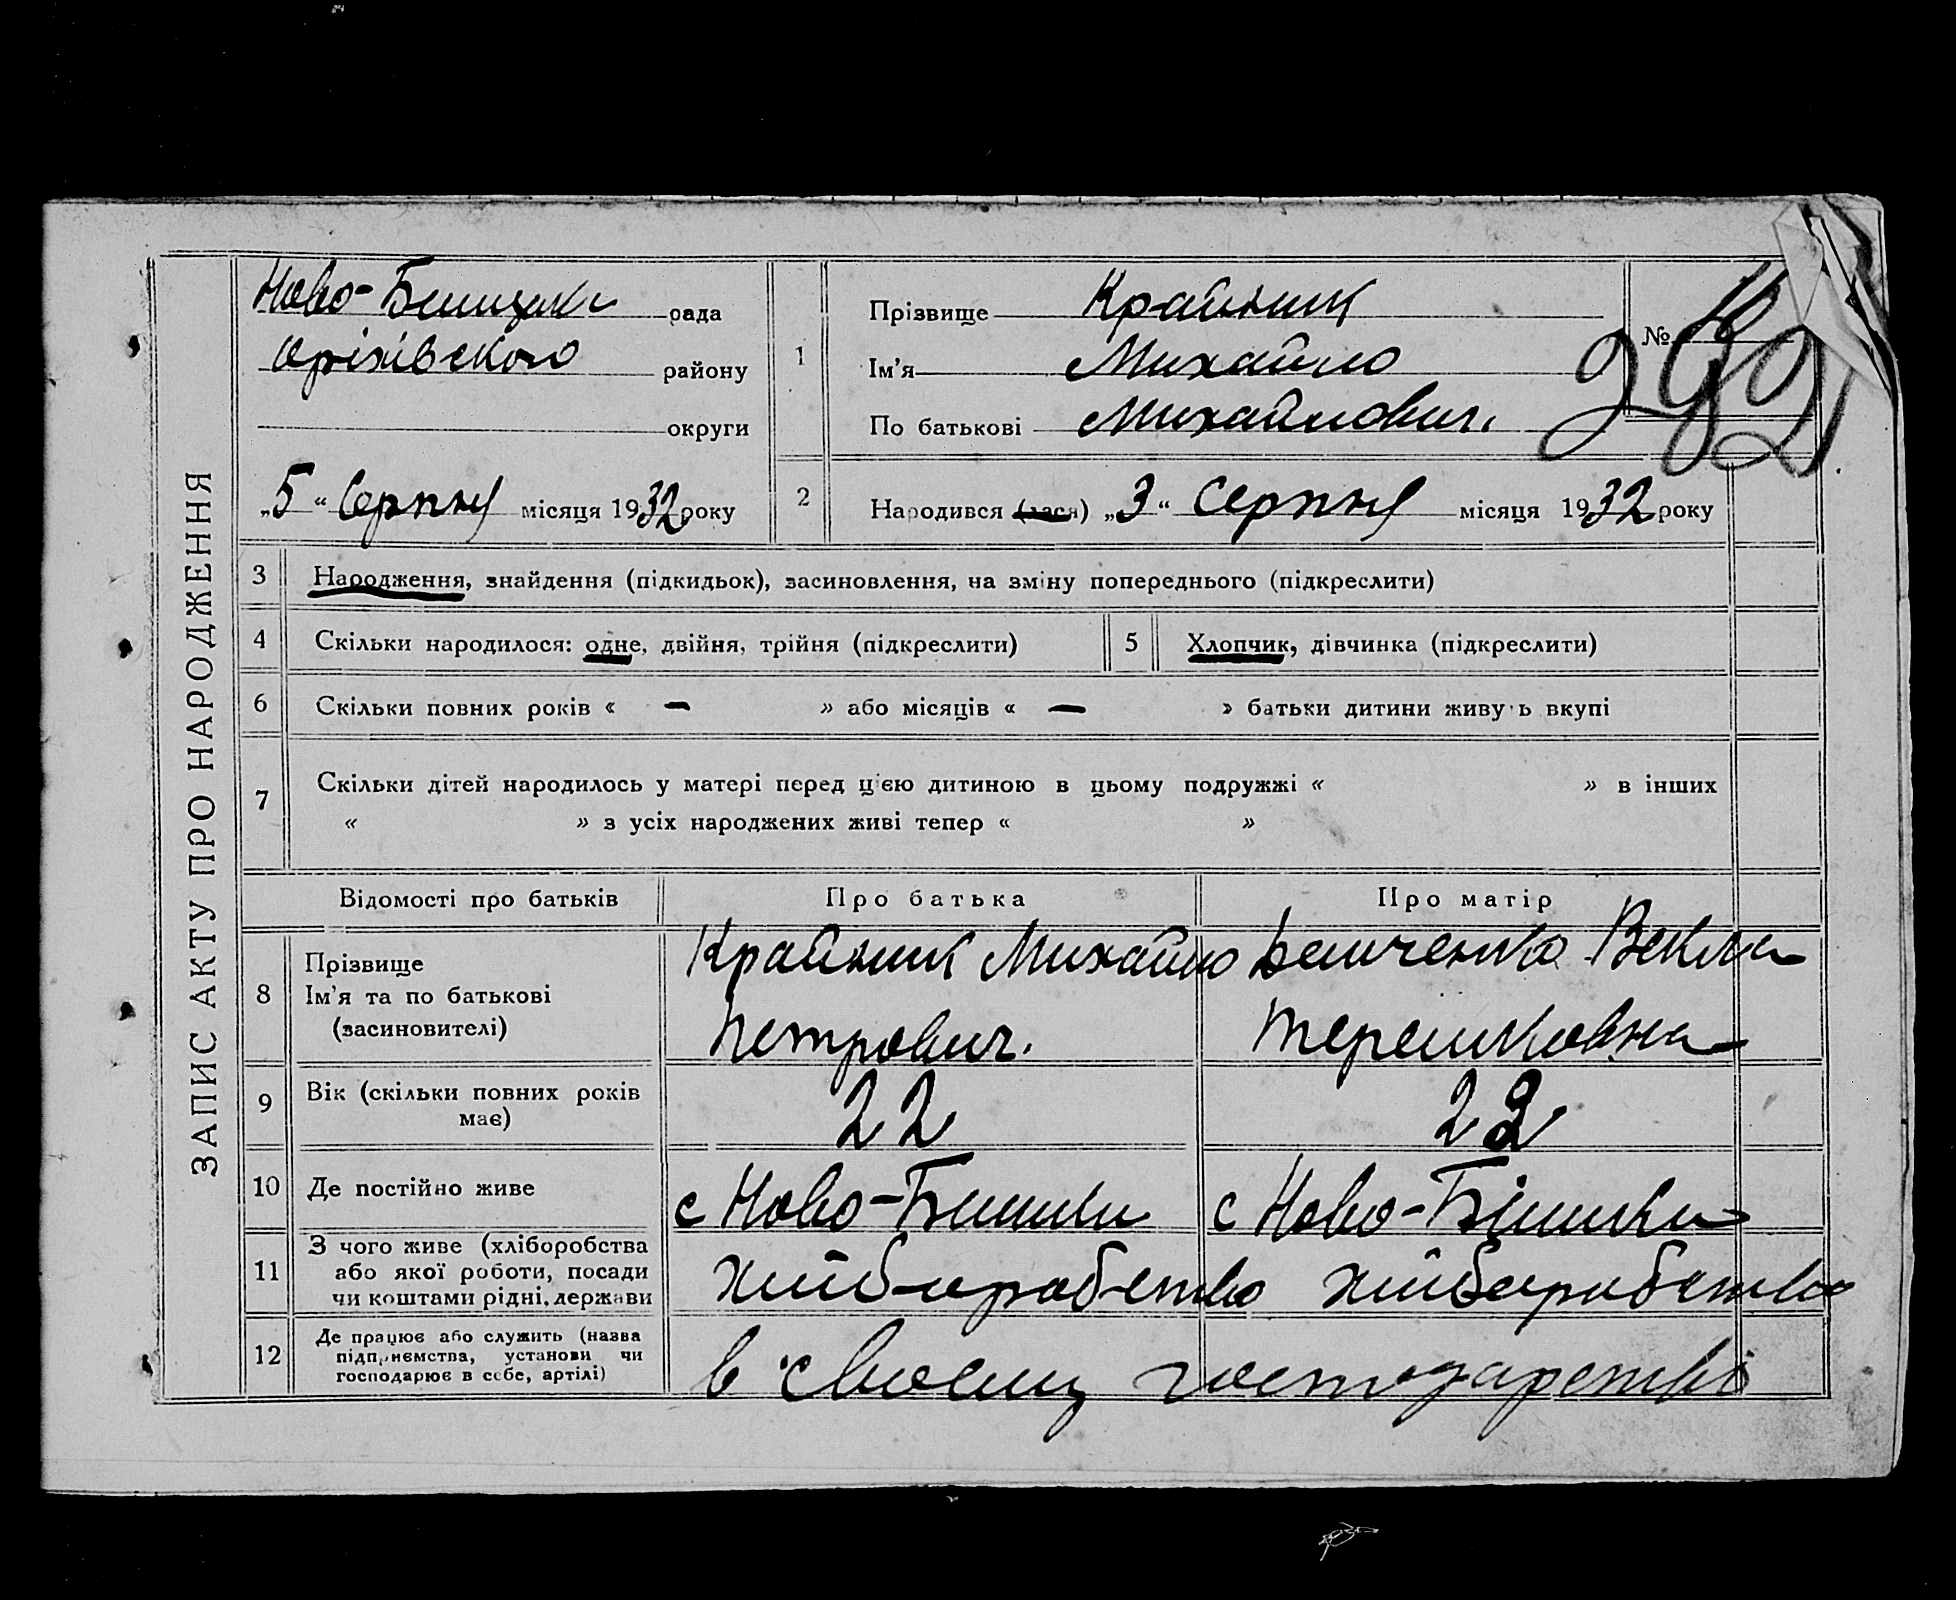 ЗАПИС АКТУ ПРО НАРОДЖЕННЯ
Ново- рада
Оріхівського району
округи
„5“ Серпня місяця 1932 року
1
Прізвище Крайник
Ім'я Михайло
По батькові Михайлович.
№
292
2
Народився (лася) „3“ Серпня місяця 1932 року
3 Народження, знайдення (підкидьок), засиновлення, на зміну попереднього (підкреслити)
4 Скільки народилося: одне, двійня, трійня (підкреслити) 5 Хлопчик, дівчинка (підкреслити)
6 Скільки повних років « — » або місяців « — » батьки дитини живуть вкупі
7 Скільки дітей народилось у матері перед цією дитиною в цьому подружжі « » в інших
« » з усіх народжених живі тепер « »
Відомості про батьків Про батька Про матір
8 Прізвище
Ім'я та по батькові
(засиновителі)
Крайник Михайло
Петрович.
Векла
Терешковна
9 Вік (скільки повних років
має)
22
22
10 Де постійно живе с Ново-Бішики с Ново-Бішики
11 З чого живе (хліборобства
або якої роботи, посади
чи коштами рідні, держави
хліборобство хліборобство
12 Де працює або служить (назва
підприємства, установи чи
господарює в себе, артілі)
в своєму господарстві